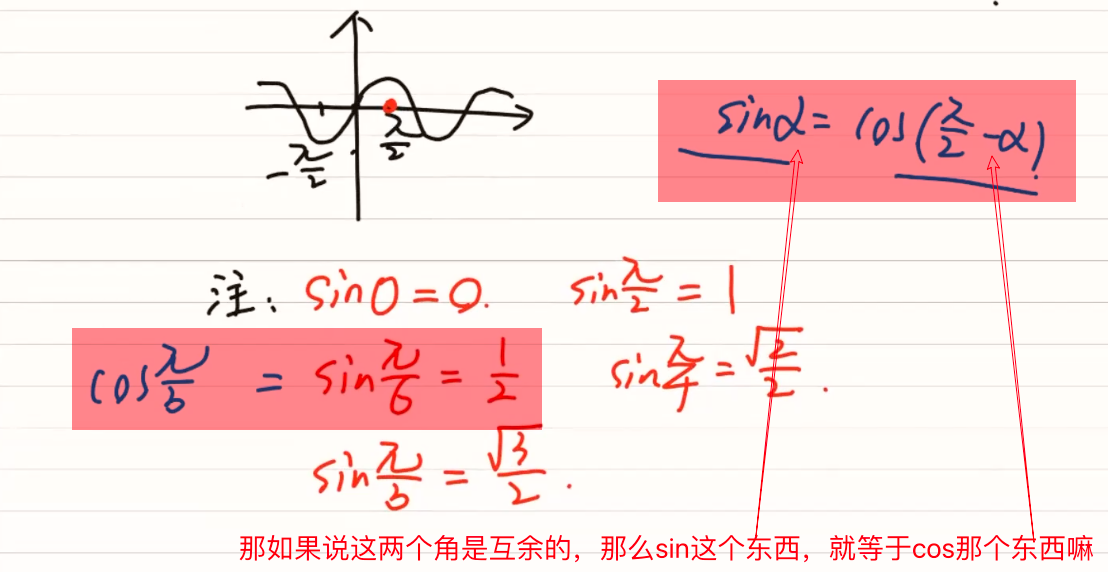 sinα = cos(π/2 -α)
-π/2 π/2
注: sin0 = 0. sinπ/2 = 1
cosπ/3 = sinπ/6 = 1/2 sinπ/4 = √2/2.
sinπ/3 = √3/2.
那如果说这两个角是互余的，那么sin这个东西，就等于cos那个东西嘛